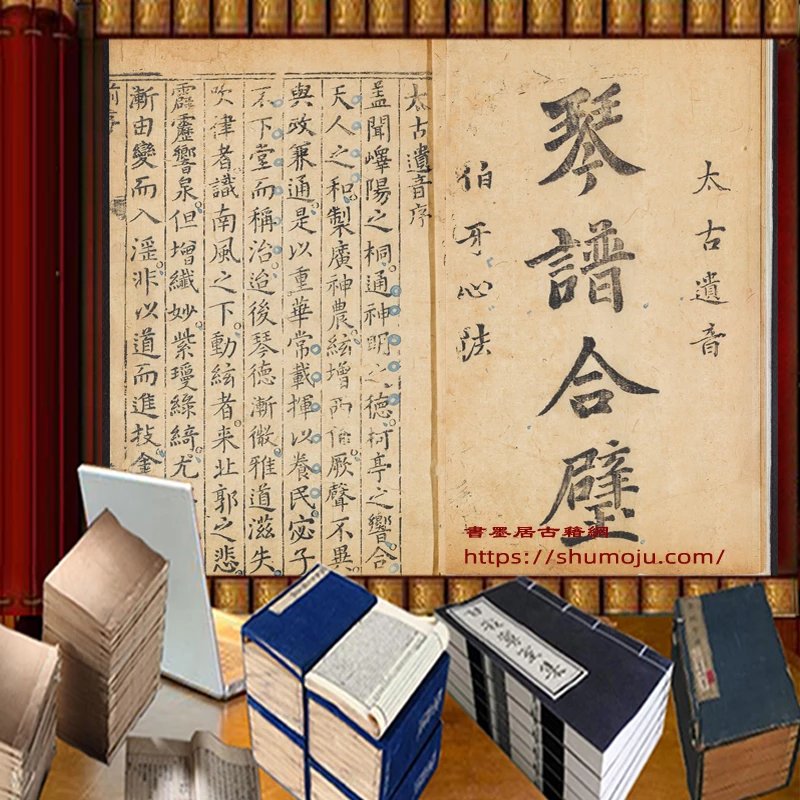 太古遺音
琴譜合璧
伯牙心法
太古遺音序
蓋聞嶧陽之桐通神明之德柯亭之響合
天人之和製廣神農絃增兩倫厥聲不異
與政兼通是以重華常載揮以養民宓子
不下堂而稱治迨後琴德漸微雅道滋失
吹律者識南風之下動絃者来北郭之悲
霹靂響泉但增纖妙紫瓊綠綺尤
漸由變而入淫非以道而進技金
前序
書墨居古籍網
https://shumoju.com/